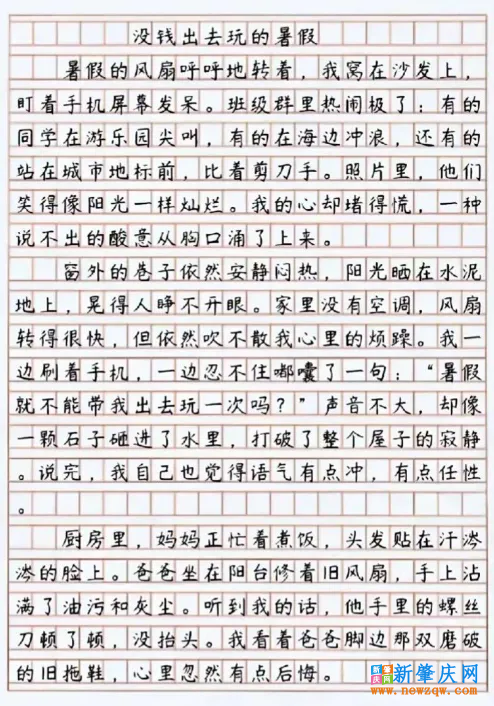 没钱出去玩的暑假
暑假的风扇呼呼地转着，我窝在沙发上，
盯着手机屏幕发呆。班级群里热闹极了：有的
同学在游乐园尖叫，有的在海边冲浪，还有的
站在城市地标前，比着剪刀手。照片里，他们
笑得像阳光一样灿烂。我的心却堵得慌，一种
说不出的酸意从胸口涌了上来。
窗外的巷子依然安静闷热，阳光晒在水泥
地上，晃得人睁不开眼。家里没有空调，风扇
转得很快，但依然吹不散我心里的烦躁。我一
边刷着手机，一边忍不住嘟囔了一句：“暑假
就不能带我出去玩一次吗？”声音不大，却像
一颗石子砸进了水里，打破了整个屋子的寂静
。说完，我自己也觉得语气有点冲，有点任性
。
厨房里，妈妈正忙着煮饭，头发贴在汗涔
涔的脸上。爸爸坐在阳台修着旧风扇，手上沾
满了油污和灰尘。听到我的话，他手里的螺丝
刀顿了顿，没抬头。我看着爸爸脚边那双磨破
的旧拖鞋，心里忽然有点后悔。
新肇庆网
www.newzqw.com